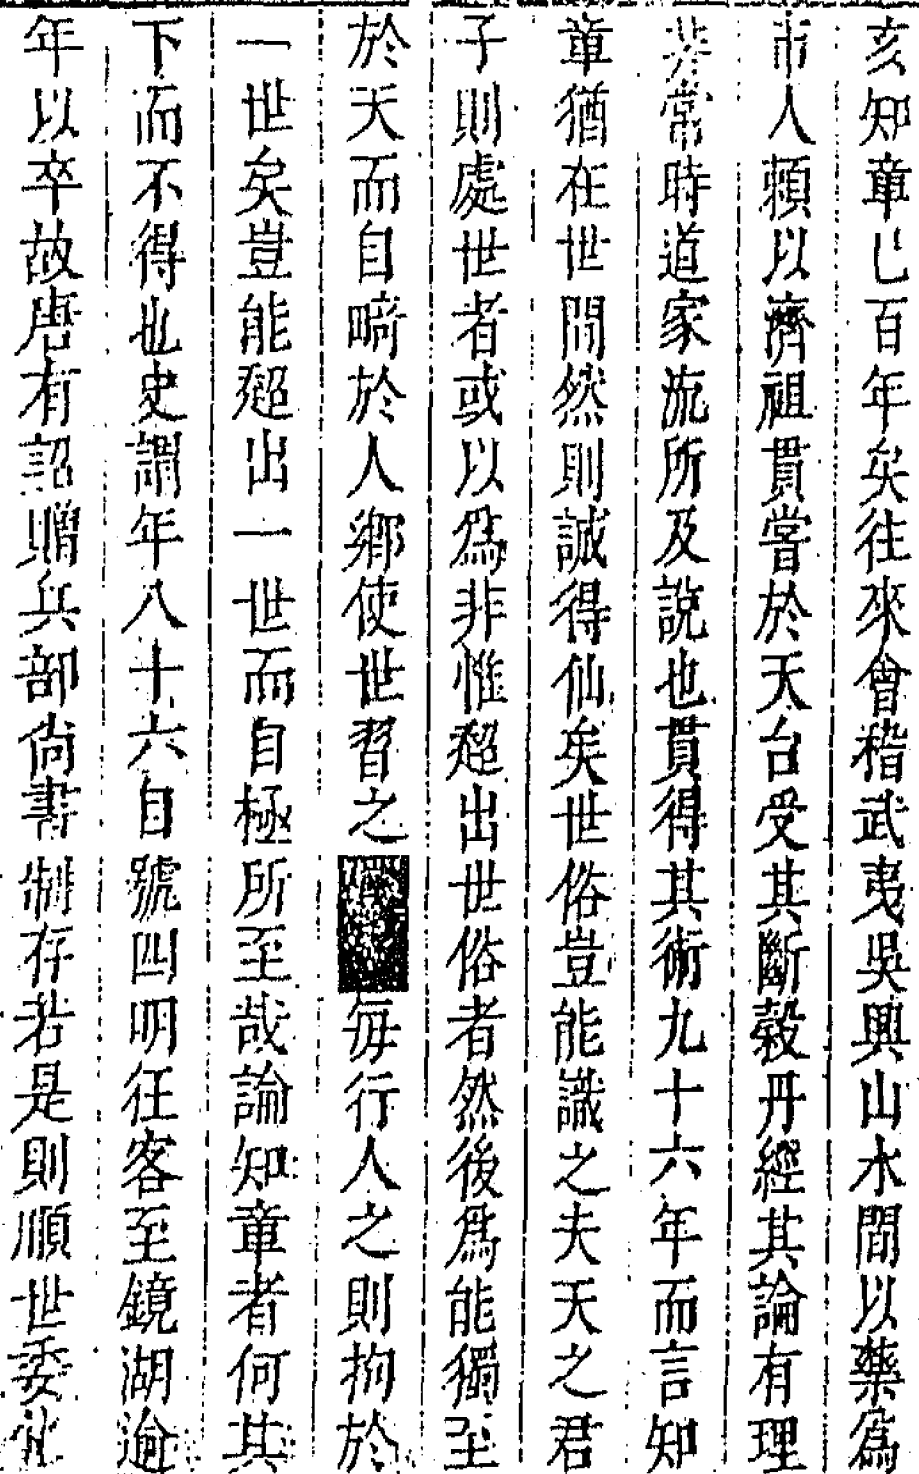 亥知章已百年矣往來會稽武夷吳興山水間以藥為
市人賴以濟祖貫嘗於天台受其斷穀丹經其論有理
非常時道家流所及說也貫得其術九十六年而言知
章猶在世間然則誠得仙矣世俗豈能識之夫天之君
子則處世者或以為非惟超出世俗者然後為能獨至
於天而自畸於人鄉使世習之每行人之則拘於
一世矣豈能超出一世而自極所至哉論知章者何其
下而不得也史謂年八十六自號四明狂客至鏡湖逾
年以卒故唐有詔贈兵部尚書制存若是則順世委